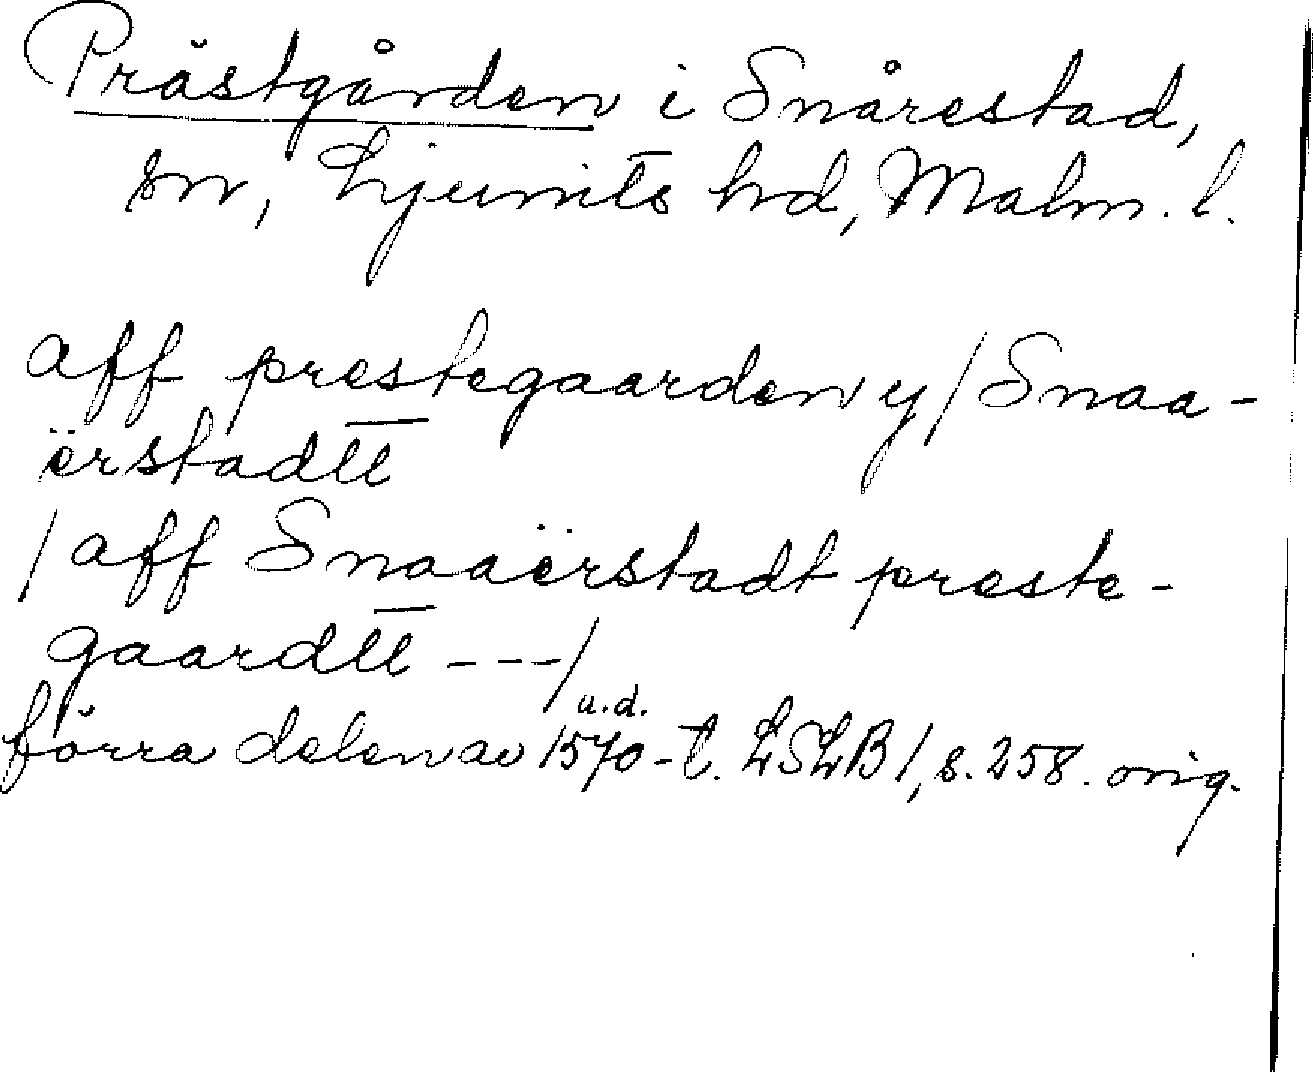 Prästgården i Snårestad,
sn, Ljunits hd, Malm. l.
aff prestegaarden y / Snaa-
ërstadtt
/ aff Snaaërstadt preste-
gaardtt --- /
u.d.
förra delen av 1570-t. LSLB 1, s. 258. orig.